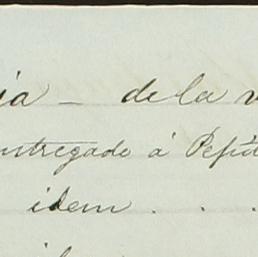 ia - de la
entregado á Pepit
idem . . .